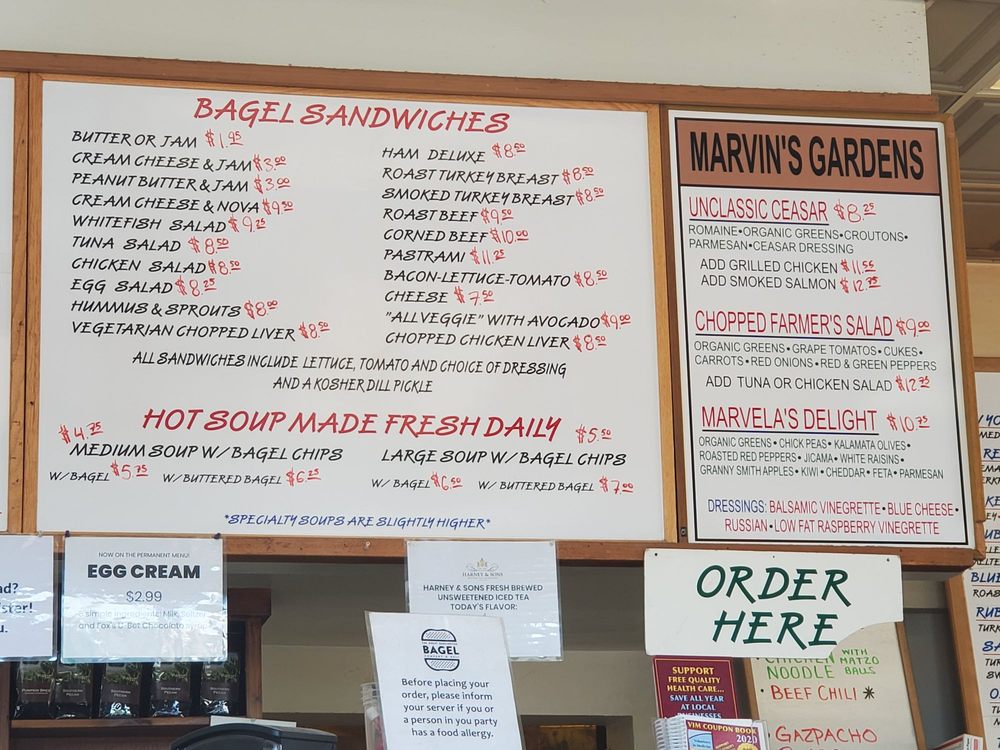 BAGEL SANDWICHES
BUTTER OR JAM $1.95
CREAM CHEESE & JAM $3.00
PEANUT BUTTER & JAM $3.00
CREAM CHEESE & NOVA $9.50
WHITEFISH SALAD $9.25
TUNA SALAD $8.50
CHICKEN SALAD $8.50
EGG SALAD $8.25
HUMMUS & SPROUTS $8.00
VEGETARIAN CHOPPED LIVER $8.50
HAM DELUXE $8.50
ROAST TURKEY BREAST $8.50
SMOKED TURKEY BREAST $8.50
ROAST BEEF $9.50
CORNED BEEF $10.00
PASTRAMI $11.25
BACON-LETTUCE-TOMATO $8.50
CHEESE $7.50
"ALL VEGGIE" WITH AVOCADO $9.00
CHOPPED CHICKEN LIVER $8.50
ALL SANDWICHES INCLUDE LETTUCE, TOMATO AND CHOICE OF DRESSING
AND A KOSHER DILL PICKLE
HOT SOUP MADE FRESH DAILY
$4.75
MEDIUM SOUP W/ BAGEL CHIPS
W/ BAGEL $5.75 W/ BUTTERED BAGEL $6.25
$5.50
LARGE SOUP W/ BAGEL CHIPS
W/ BAGEL $6.50 W/ BUTTERED BAGEL $7.00
*SPECIALTY SOUPS ARE SLIGHTLY HIGHER*
MARVIN'S GARDENS
UNCLASSIC CEASAR $8.25
ROMAINE•ORGANIC GREENS•CROUTONS•
PARMESAN•CEASAR DRESSING
ADD GRILLED CHICKEN $11.55
ADD SMOKED SALMON $12.75
CHOPPED FARMER'S SALAD $9.00
ORGANIC GREENS•GRAPE TOMATOS•CUKES•
CARROTS•RED ONIONS•RED & GREEN PEPPERS
ADD TUNA OR CHICKEN SALAD $12.75
MARVELA'S DELIGHT $10.75
ORGANIC GREENS•CHICK PEAS•KALAMATA OLIVES•
ROASTED RED PEPPERS•JICAMA•WHITE RAISINS•
GRANNY SMITH APPLES•KIWI•CHEDDAR•FETA•PARMESAN
DRESSINGS: BALSAMIC VINEGRETTE•BLUE CHEESE•
RUSSIAN•LOW FAT RASPBERRY VINEGRETTE
NOW ON THE PERMANENT MENU!
EGG CREAM
$2.99
3 simple ingredients: Milk, Seltzer
and Fox's U-Bet Chocolate syrup
HARNEY & SONS
HARNEY & SONS FRESH BREWED
UNSWEETENED ICED TEA
TODAY'S FLAVOR:
BAGEL
Before placing your
order, please inform
your server if you or
a person in you party
has a food allergy.
ORDER
HERE
CHICKEN WITH
NOODLE MATZO
BALLS
BEEF CHILI *
GAZPACHO
SUPPORT
FREE QUALITY
HEALTH CARE...
SAVE ALL YEAR
AT LOCAL
BUSINESSES
VIM COUPON BOOK
2020
SOUTHERN
PECAN
SOUTHERN
PECAN